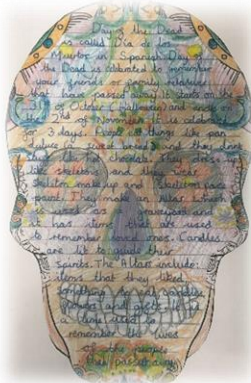 Day of the Dead
is called Dia de los
Muertos in Spanish. Day of
the Dead is celebrated to remember
your friends or family relatives
that have passed away. It starts on the
31st of October (Halloween) and ends on
the 2nd of November. It is celebrated
for 3 days. People eat things like pan
dulce (a sweet bread) and they drink
things like hot chocolate. They dress up
like skeletons and they wear
skeleton makeup and skeleton face
paint. They make an Altar which
used as gravestones and
it has items that are used
to remember loved ones. Candles
are lit to guide their
spirits. The Altars include:
items that they liked
something sweet, candles
flowers and
a
remember the lives
of the people
that passed away